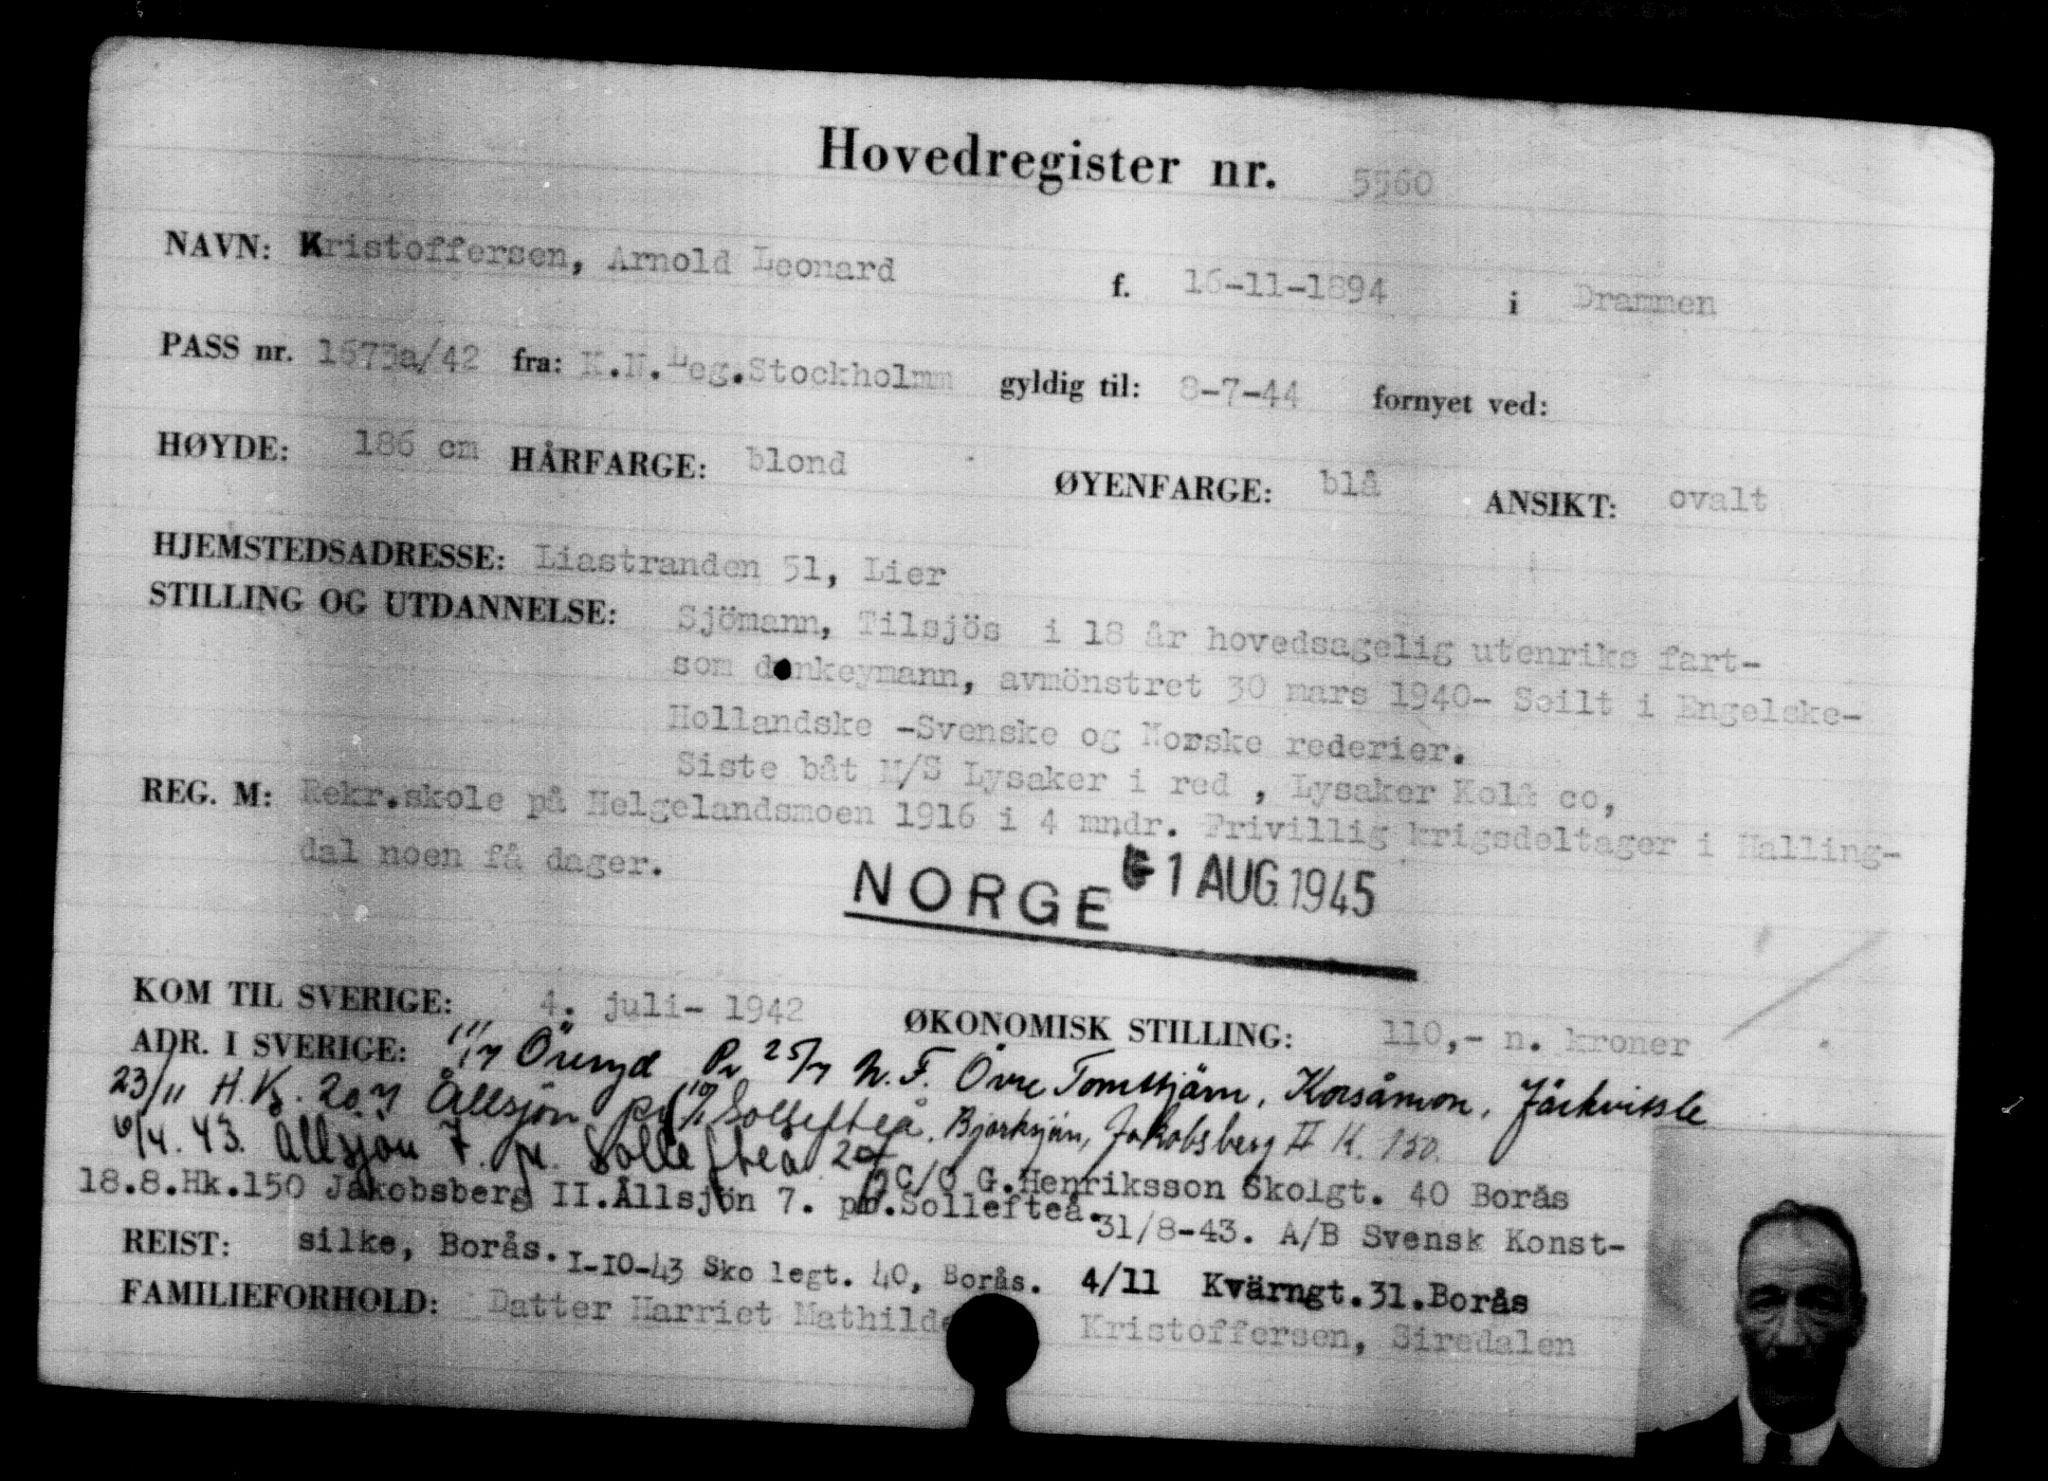 Hovedregister nr. 5560
NAVN: Kristoffersen, Arnold Leonard f. 16-11-1894 i Drammen
PASS nr. 1673a/42 fra: K.N.Leg.Stockholmm gyldig til: 8-7-44 fornyet ved:
HØYDE: 186 cm HÅRFARGE: blond ØYENFARGE: blå ANSIKT: ovalt
HJEMSTEDSADRESSE: Liastranden 51, Lier
STILLING OG UTDANNELSE: Sjömann, Tilsjös i 18 år hovedsagelig utenriks fart-
som donkeymann, avmönstret 30 mars 1940- Seilt i Engelske-
Hollandske -Svenske og Norske rederier.
Siste båt M/S Lysaker i red , Lysaker Kol& co,
REG. M: Rekr.skole på Helgelandsmoen 1916 i 4 mndr. Frivillig krigsdeltager i Halling-
dal noen få dager.
NORGE 1 AUG.1945
KOM TIL SVERIGE: 4. juli- 1942 ØKONOMISK STILLING: 110,- n. kroner
ADR. I SVERIGE: 11/7 Öreryd Pr 25/7 N.F. Övre Tomttjärn, Korsåmon, Järkvissle
23/11 H.K. 207 Ållsjön pr Sollefteå, Bjorksjön, Jakobsberg II K. 150.
6/4. 43. Ållsjön 7. pr. Sollefteå 207
C/O G.Henriksson Skolgt. 40 Borås
18.8.Hk.150 Jakobsberg II.Ållsjön 7. pr.Sollefteå.
31/8-43. A/B Svensk Konst-
REIST: silke, Borås. 1-10-43 Sko legt. 40, Borås. 4/11 Kvärngt.31.Borås
FAMILIEFORHOLD: Datter Harriet Mathilde Kristoffersen, Siredalen